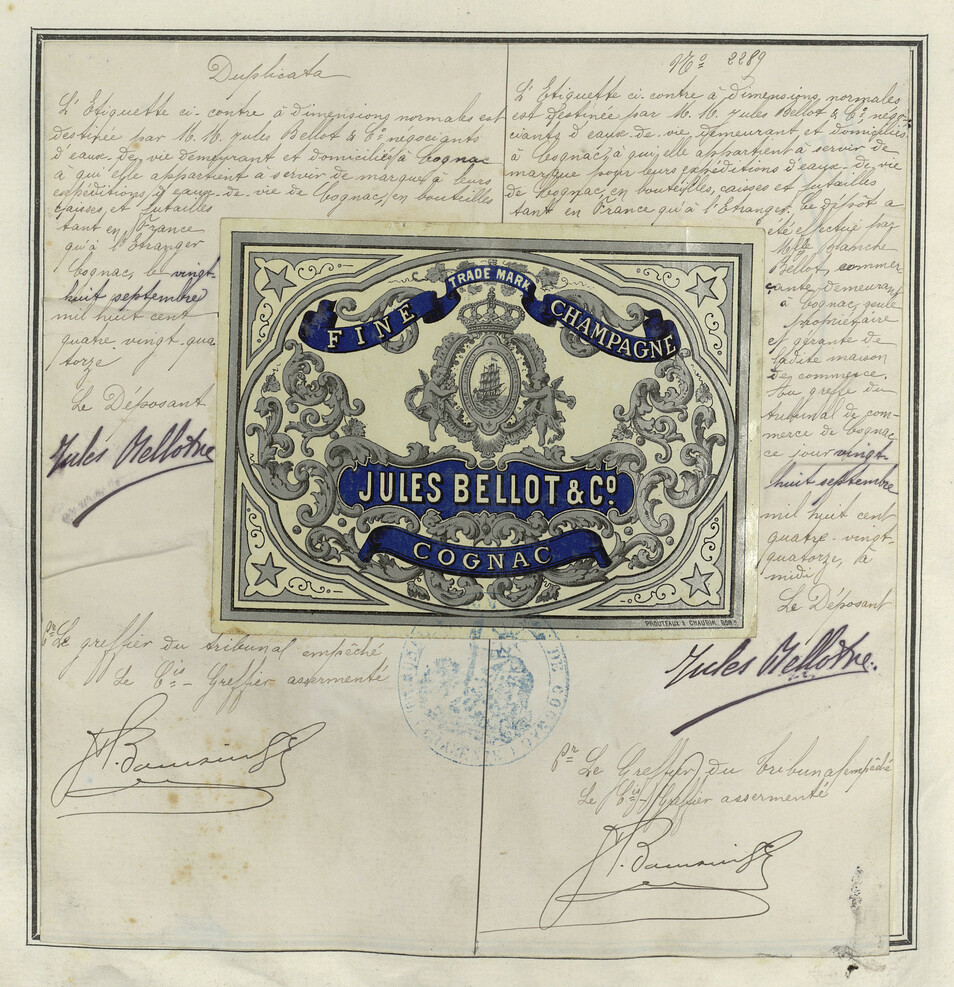 Duplicata
L'Etiquette ci-contre à dimensions normales est
destinée par M.M. Jules Bellot & Cº négociants
d'eaux-de-vie demeurant et domiciliés à Cognac
à qui elle appartient à servir de marque à leurs
expéditions d'eaux-de-vie de Cognac, en bouteilles
caisses et futailles
tant en France
qu'à l'Etranger
Cognac, le vingt-
huit septembre
mil huit cent
quatre-vingt-qua
torze
Le Déposant
Jules Bellot
pr Le greffier du tribunal empêché
Le Cis-Greffier assermenté
Nº 2289
L'Etiquette ci-contre à dimensions normales
est destinée par M.M. Jules Bellot & Cº, négo-
ciants d'eaux-de-vie, demeurant et domiciliés
à Cognac, à qui elle appartient à servir de
marque pour leurs expéditions d'eaux-de-vie
de Cognac, en bouteilles, caisses et futailles
tant en France qu'à l'Etranger. Ce dépôt a
été effectué par
Mme Blanche
Bellot, commer-
çante, demeurant
à Cognac, seule
propriétaire
et gérante de
ladite maison
de commerce.
au greffe du
tribunal de com-
merce de Cognac
ce jour vingt-
huit septembre
mil huit cent
quatre-vingt-
quatorze, à
midi
Le Déposant
Jules Bellot
Pr Le Greffier du tribunal empêché
Le Cis-Greffier assermenté
TRADE MARK
FINE CHAMPAGNE
JULES BELLOT & Cº.
COGNAC
PROUTEAUX & CHAURIN, BORX
DE COGNAC